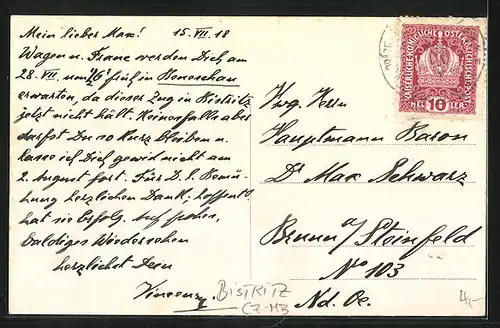 Mein lieber Max! 15.VII.18
Wagen u. Franc werden Dich am
28.VII. um früh in Beneschau
erwarten, da dieser Zug in Bistritz
jetzt nicht hält. Keinesfalls aber
darfst Du so kurz bleiben u.
lasse ich Dich gewiß nicht am
2. August fort. Für D. l. Bemü-
hung herzlichen Dank; hoffentl.
hat sie Erfolg. Auf frohes,
baldiges Wiedersehen
herzlichst Dein
Vincenz
KAISERLICHE KÖNIGLICHE ÖSTERREICHISCHE POST
10
HELLER
Hwg. Herrn
Hauptmann Baron
Dr Max Schwarz
Brunn a/ Steinfeld
No 103
Nd. Oe.
BISTRITZ
CZ-MB
4,-